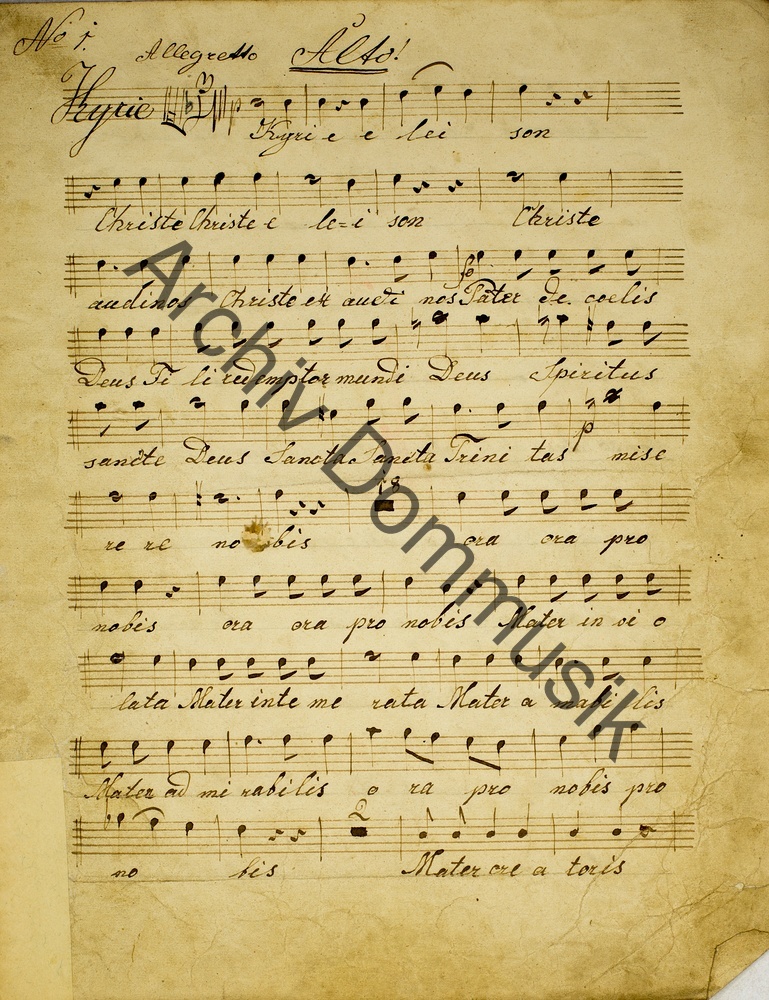 No 1.
Allegretto Alto!
Kyrie 3 p
Kyri e e lei son
Christe Christe e le=i son Christe
audinos Christe ex audi nos Pater de coelis
fo
Deus Fi li redemptor mundi Deus Spiritus
sancte Deus Sancta Sancta Trini tas mise
p
re re no bis ora ora pro
18
nobis ora ora pro nobis Mater in vi o
lata Mater inte me rata Mater a mabi lis
Mater ad mi rabilis o ra pro nobis pro
2
no bis Mater cre a toris
Archiv Dommusik